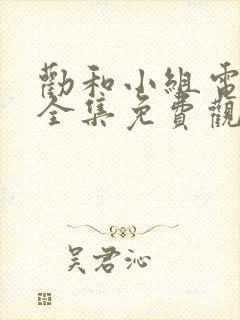 勸和小組電
全集免費觀
吳君沁